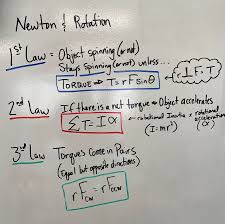 Newton & Rotation
1st Law = Object spinning (or not)
Stays spinning (or not) unless...
TORQUE → T = rF sinθ
r⊥F = T
2nd Law If there is a net torque → Object accelerates
ΣT = Iα ← rotational Inertia x rotational acceleration
(I = mr²) (α)
3rd Law Torque's Come in Pairs
(Equal but opposite directions)
rFcw = rFccw